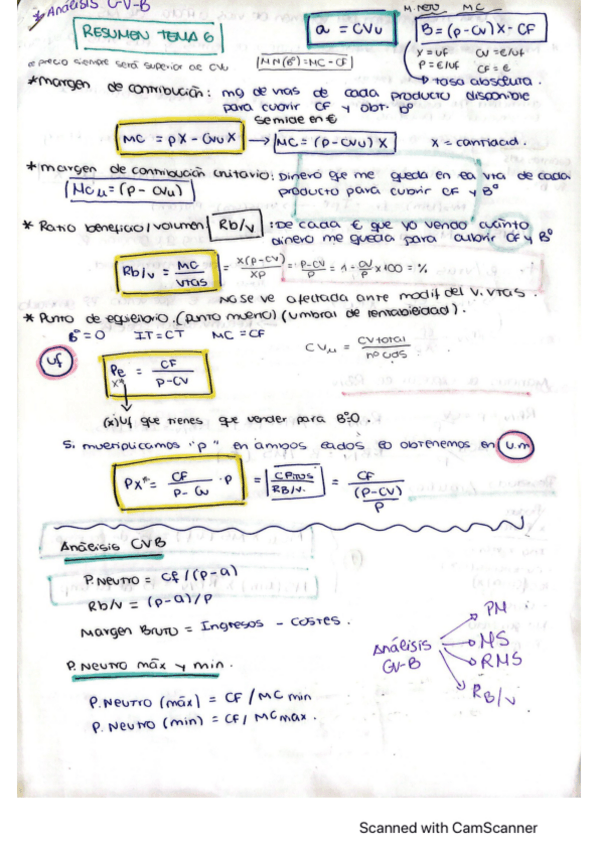 * Análisis C-V-B
RESUMEN TEMA 6
a = CVu
M. NETO MC
B = (p-cv)X - CF
el precio siempre será superior al CVu
MN(Bº) = MC - CF
X = UF CV = €/uf
P = €/uf CF = €
→ tasa absoluta.
* margen de contribución: mg de vtas de cada producto disponible
para cubrir CF y obt. Bº
se mide en €
MC = pX - CVuX → MC = (p-CVu) X X = cantidad.
* margen de contribución unitario: Dinero que me queda en la vta de cada
producto para cubrir CF y Bº
MCu = (p - CVu)
* Ratio beneficio/volumen Rb/v : De cada € que yo vendo cuánto
dinero me queda para cubrir CF y Bº
Rb/v = MC/vtas = X(p-cv)/Xp = p-cv/p = 1 - cv/p x100 = %
No se ve afectada ante modif del V. vtas.
* Punto de equilibrio. (Punto muerto) (umbral de rentabilidad).
Bº = 0 IT = CT MC = CF
CVu = CV total / nº uds
uf
Pe x* = CF / P - CV
(x) uf que tienes que vender para Bº=0.
Si multiplicamos "p" en ambos lados lo obtenemos en u.m
PX* = CF / P - CV · P = / RB/v. = CF / (P-CV) / P
Análisis CVB
P. NEUTRO = CF / (p-a)
Rb/v = (p-a)/p
Margen Bruto = Ingresos - costes.
P. Neutro máx y min.
P. Neutro (máx) = CF / MC min
P. Neutro (min) = CF / MC max.
Análisis
C-V-B
PM
MS
RMS
RB/v
Scanned with CamScanner